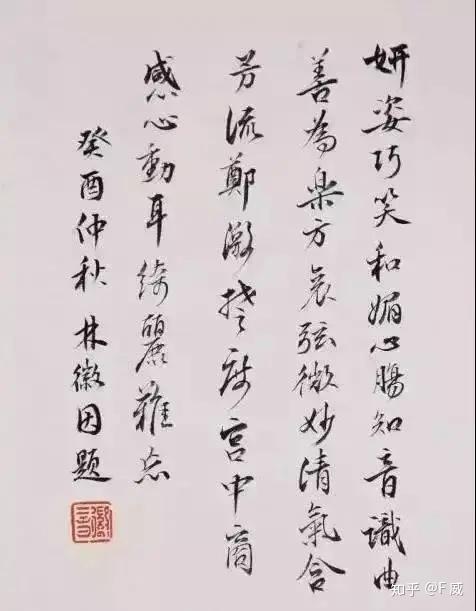 妍姿巧笑和媚心腸知音識曲
善為樂方哀弦微妙清氣含
芳流鄭激楚度宮中商
感心動耳綺麗難忘
癸酉仲秋 林徽因題
徽音
知乎 @F威